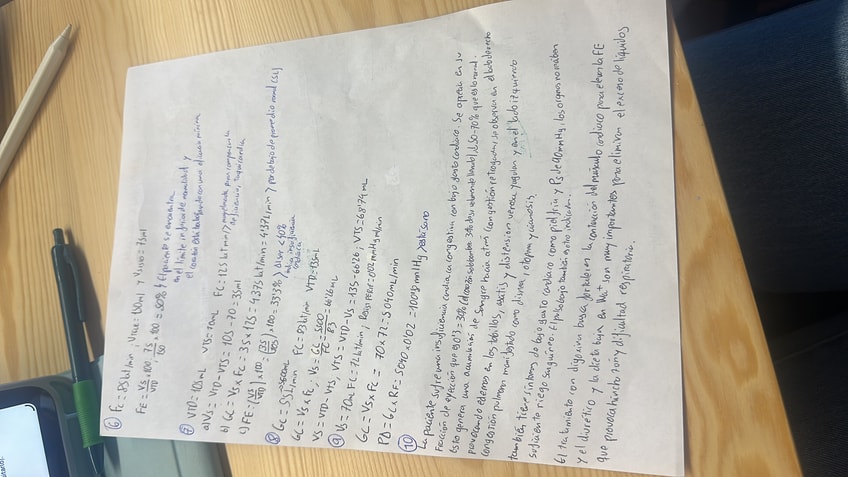 ⑥ Fc = 85 bt/min ; VTD = 150ml y
FE = VS/VTD x 100 = 75/150 x 100 = 50% El paciente se encuentra
en el límite inferior de normalidad y
el corazón está trabajando con una eficiencia mínima
⑦ VTD = 105mL VTS = 70mL FC = 125 bt/min
a) VS = VTD - VTS = 105 - 70 = 35ml
b) GC = VS x FC = 35 x 125 = 4375 bt/min = 4'37 L/min > por debajo de promedio normal (5L)
c) FE = (VS/VTD) x 100 = (35/105) x 100 = 33'3% >
⑧ GC = FC = 83 bt/min VTD = 135mL
GC = VS x FC ; VS = GC/FC = 5500/83 = 66'26mL
VS = VTD - VTS, VTS = VTD - VS = 135 - 66'26 ; VTS = 68'74mL
⑨ VS = 70mL FC = 72 bt/min, Resis PERIF = 0'02 mmHg ml/min
GC = VS x FC = 70 x 72 = 5040mL/min
PA = GC x RF = 5040 x 0'02 = 100'8 mmHg
⑩
La paciente sufre una insuficiencia cardiaca congestiva con bajo gasto cardiaco. Se aprecia en su
fracción de eyección que es
Esto genera una acumulación de sangre hacia atrás (congestión retrógrada), se observa en el lado derecho
provocando edemas en los tobillos, ascitis y distensión venosa yugular y en el lado izquierdo
congestión pulmonar manifestado como disnea, ortopnea y cianosis.
también tiene síntomas de bajo gasto cardiaco como piel fría y PS de 90mmHg, los órganos no reciben
suficiente riego sanguíneo. El pulso bajo también es otro indicador.
El tratamiento con digoxina busca fortalecer la contracción del músculo cardiaco para elevar la FE
y el diurético y la dieta baja en Na⁺ son muy importantes para eliminar el exceso de líquidos
que provoca hinchazón y dificultad respiratoria.